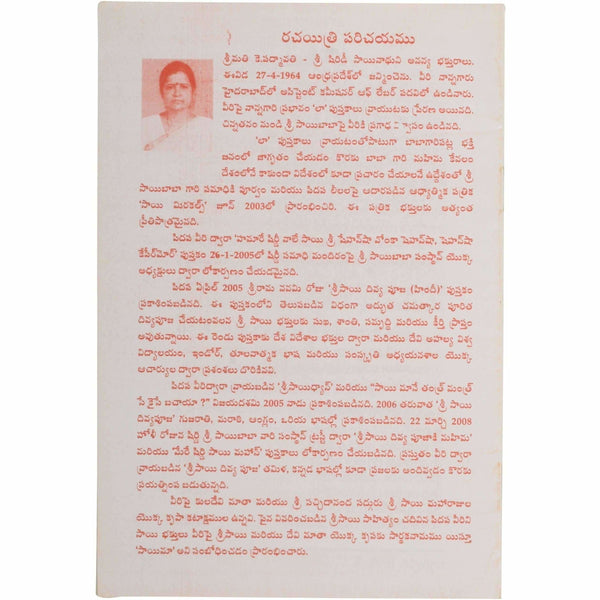 రచయిత్రి పరిచయము
శ్రీమతి కె.పద్మావతి - శ్రీ షిరిడీ సాయినాథుని అనన్య భక్తురాలు.
ఈవిడ 27-4-1964 ఆంధ్రప్రదేశ్‌లో జన్మించెను. వీరి నాన్నగారు
హైదరాబాద్‌లో అసిస్టెంట్ కమీషనర్ ఆఫ్ లేబర్ పదవిలో ఉండినారు.
వీరిపై నాన్నగారి ప్రభావం 'లా' పుస్తకాలు వ్రాయుటకు ప్రేరణ అయినది.
చిన్నతనం నుండి శ్రీ సాయిబాబాపై వీరికి ప్రగాఢ విశ్వాసం ఉండినది.
'లా' పుస్తకాలు వ్రాయటంతోపాటుగా బాబాగారిపట్ల భక్తి
జనంలో జాగృతం చేయడం కొరకు బాబా గారి మహిమ కేవలం
దేశంలోనే కాకుండా విదేశంలో కూడా ప్రచారం చేయాలనే ఉద్దేశంతో శ్రీ
సాయిబాబా గారి సమాధికి పూర్వం మరియు పిదప లీలలపై ఆధారపడిన ఆధ్యాత్మిక పత్రిక
'సాయి మిరకల్స్' జూన్ 2003లో ప్రారంభించిరి. ఈ పత్రిక భక్తులకు అత్యంత
ప్రీతిపాత్రమైనది.
పిదప వీరి ద్వారా 'హమారే షిర్డీ వాలే సాయి శ్రీ షేనావ్‌షా వోంకా షెహన్‌షా, షెహన్‌షా
కేసేర్‌మోర్' పుస్తకం 26-1-2005లో షిర్డీ సమాధి మందిరంపై శ్రీ సాయిబాబా సంస్థాన్ యొక్క
అధ్యక్షులు ద్వారా లోకార్పణం చేయడమైనది.
పిదప ఏప్రిల్ 2005 శ్రీరామ నవమి రోజు 'శ్రీసాయి దివ్య పూజ (హిందీ)' పుస్తకం
ప్రకాశింపబడినది. ఈ పుస్తకంలోని తెలుపబడిన విధంగా అద్భుత చమత్కార పూరిత
దివ్యపూజ చేయటంవలన శ్రీ సాయి భక్తులకు సుఖ, శాంతి, సమృద్ధి మరియు కీర్తి ప్రాప్తం
అవుతున్నాయి. ఈ రెండు పుస్తకాకు దేశ విదేశాల భక్తుల ద్వారా మరియు దేవి అహల్య విశ్వ
విద్యాలయం, ఇండోర్, తూలనాత్మక భాష మరియు సంస్కృతి అధ్యయనశాల యొక్క
ఆచార్యుల ద్వారా ప్రశంశలు దొరికినవి.
పిదప వీరిద్వారా వ్రాయబడిన 'శ్రీసాయిధ్యాన్' మరియు "సాయి మానే తంత్ర్ మంత్ర్
సే కైసే బచాయా ?" విజయదశమి 2005 నాడు ప్రకాశింపబడినది. 2006 తరువాత 'శ్రీ సాయి
దివ్యపూజ' గుజరాతి, మరాఠి, ఆంగ్లం, ఒరియ భాషల్లో ప్రకాశింపబడినది. 22 మార్చి 2008
హోళీ రోజున షిర్డి శ్రీ సాయిబాబా వారి సంస్థాన్ ట్రస్టీ ద్వారా 'శ్రీసాయి దివ్య పూజాకీ మహిమ'
మరియు 'మేరే షిర్డి సాయి మహాన్' పుస్తకాలు లోకార్పణం చేయబడినది. ప్రస్తుతం వీరి ద్వారా
వ్రాయబడిన 'శ్రీ సాయి దివ్య పూజ' తమిళ, కన్నడ భాషల్లో కూడా ప్రజలకు అందివ్వడం కొరకు
ప్రయత్నింప బడుతున్నది.
వీరిపై కులదేవి మాతా మరియు శ్రీ సచ్చిదానంద సద్గురు శ్రీ సాయి మహారాజుల
యొక్క కృపా కటాక్షములు ఉన్నవి. పైన వివరించబడిన శ్రీసాయి సాహిత్యం చదివిన పిదప వీరిని
సాయి భక్తులు వీరిపై శ్రీ సాయి మరియు దేవి మాతా యొక్క కృపకు సార్థకనామము యిస్తూ
'సాయిమా' అని సంబోధించడం ప్రారంభించారు.